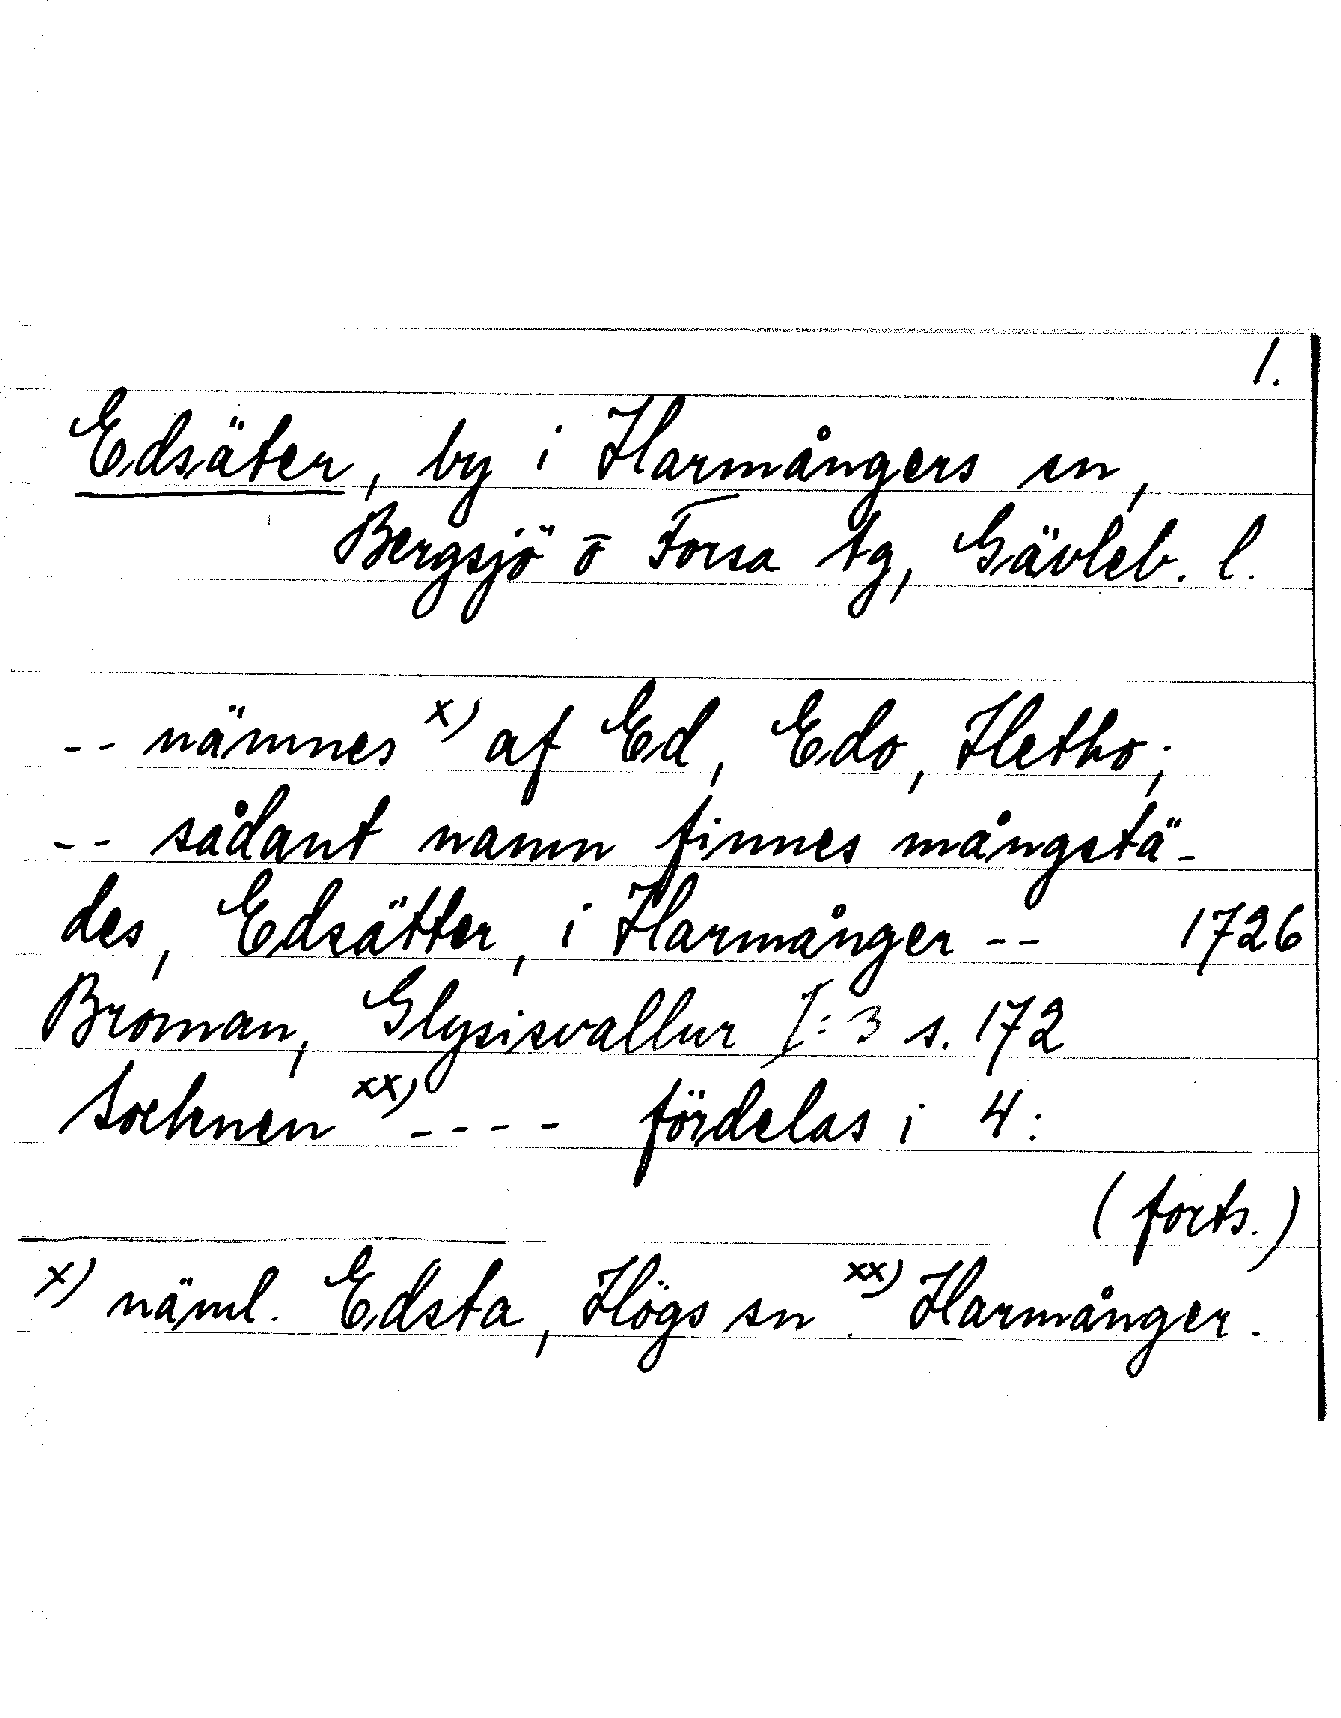 1.
Edsäter, by i Harmångers sn,
Bergsjö o Forsa tg, Gävleb. l.
-- nämnes x) af Ed, Edo, Hetho;
-- sådant namn finnes mångstä-
des, Edsätter, i Harmånger -- 1726
Broman, Glysisvallur I:3 s. 172
Soehnen xx) ---- fördelas i 4:
(forts.)
x) näml. Edsta, Högs sn xx) Harmånger.